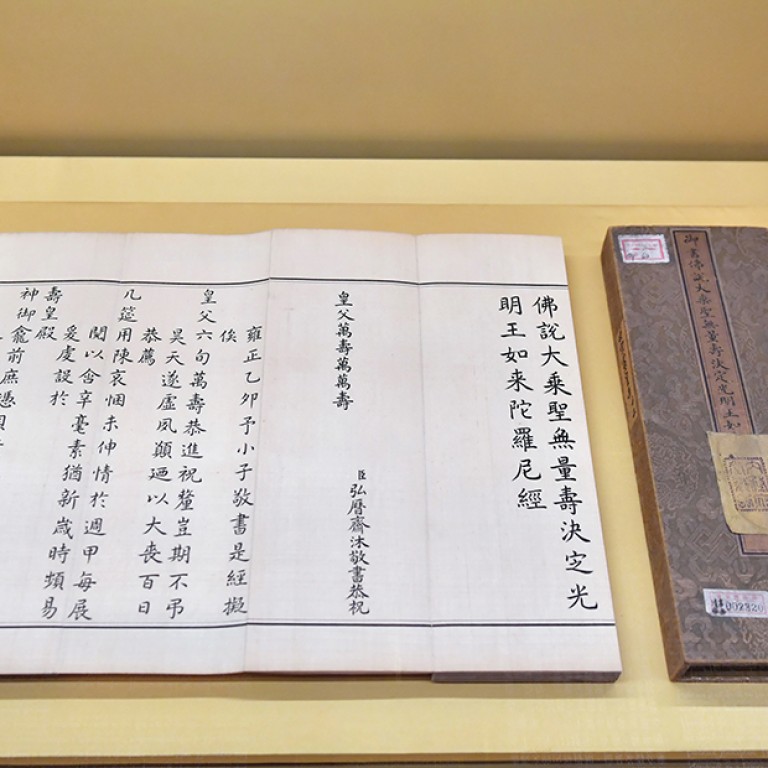 佛說大乘聖無量壽決定光
明王如来陀羅尼經
皇父萬壽萬萬壽
臣弘曆齋沐敬書恭祝
雍正乙夘予小子敬書是經擬
俟
皇父六旬萬壽恭進祝釐豈期不弔
昊天遂虛夙願廼以大喪百日
恭薦
几筵用陳哀悃未伸情於週甲每展
閱以含辛毫素猶新歲時頻易
爰虔設於
壽皇殿
神御龕前庶憑
御書佛說大乘聖無量壽決定光明王如
002320